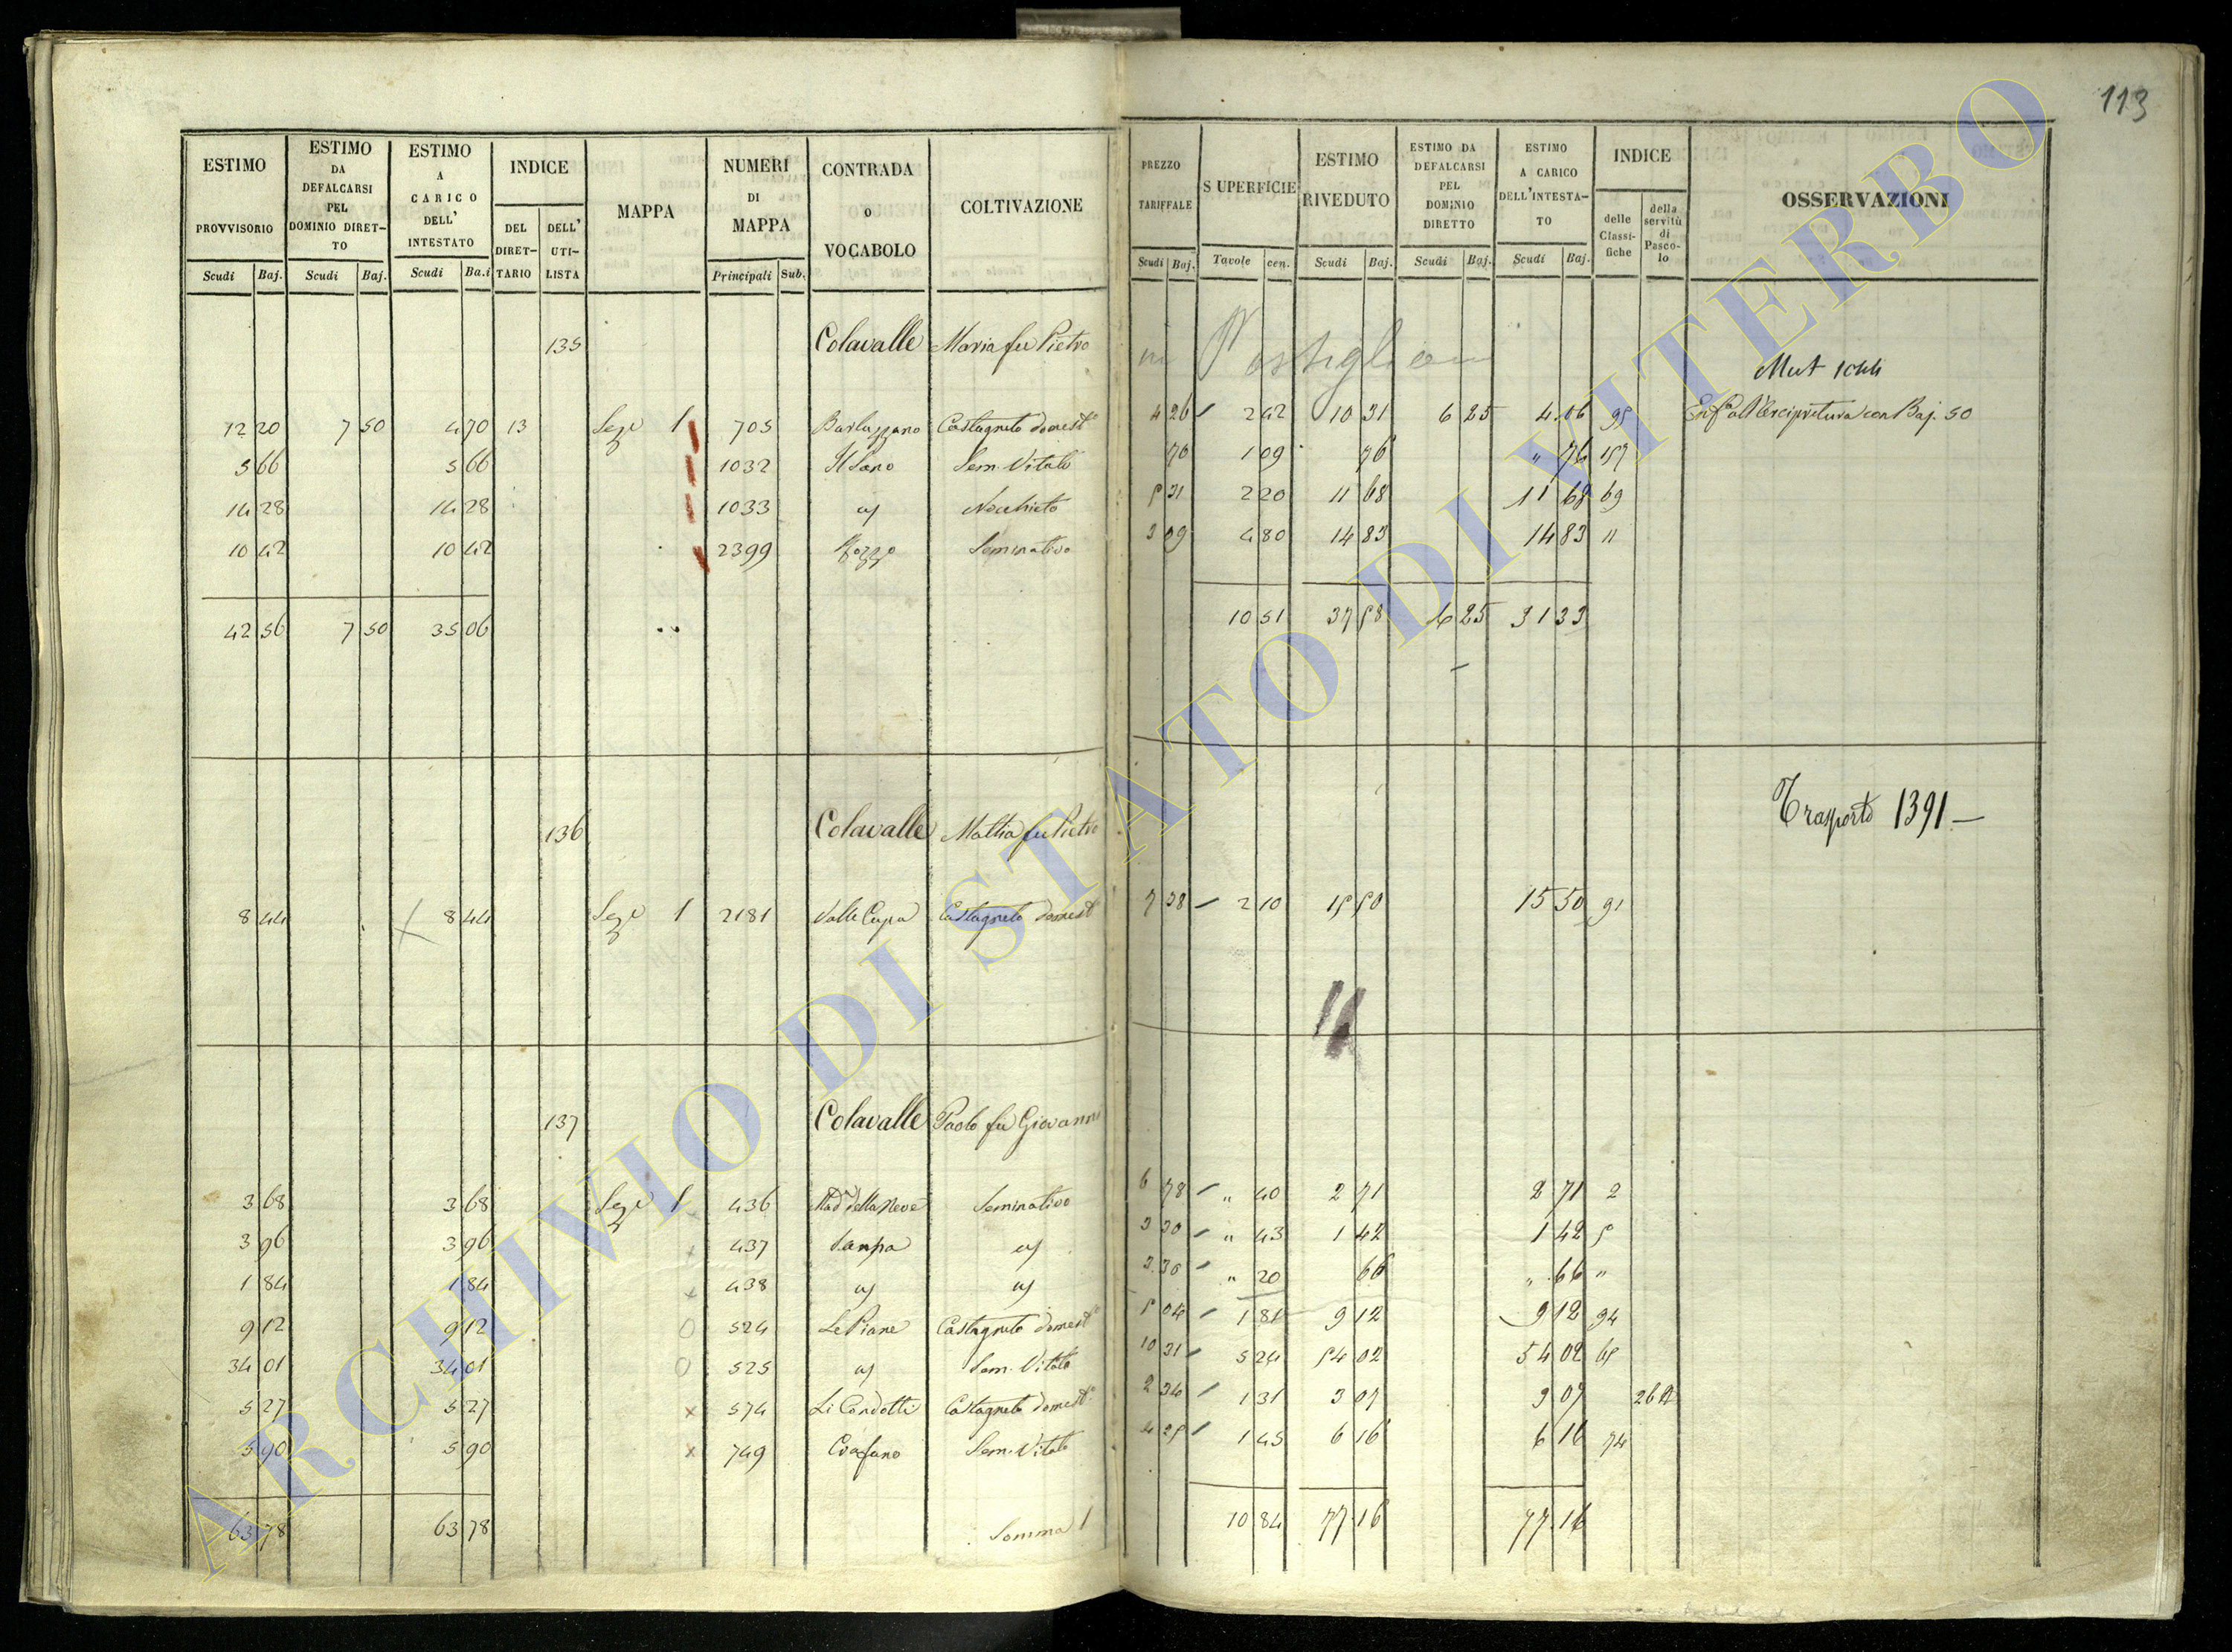 113
ESTIMO PROVVISORIO Scudi Baj.
ESTIMO DA DEFALCARSI PEL DOMINIO DIRETTO Scudi Baj.
ESTIMO A CARICO DELL' INTESTATO Scudi Ba.i
INDICE DEL DIRETTARIO DELL' UTILISTA
MAPPA
NUMERI DI MAPPA Principali Sub.
CONTRADA o VOCABOLO
COLTIVAZIONE
PREZZO TARIFFALE Scudi Baj.
SUPERFICIE Tavole cen.
ESTIMO RIVEDUTO Scudi Baj.
ESTIMO DA DEFALCARSI PEL DOMINIO DIRETTO Scudi Baj.
ESTIMO A CARICO DELL'INTESTATO Scudi Baj.
INDICE delle Classifiche della servitù di Pascolo
OSSERVAZIONI
135 Colavalle Maria fu Pietro in
Mut
12 20 7 50 4 70 13 Seze 1 705 Castagneto domest° 4 26 2 42 10 31 6 25 4 06 95 con Baj. 50
5 66 5 66 1032 Il Pano Sem. Vitato 70 1 09 76 " 76 157
14 28 14 28 1033 " Nocchieto 5 31 2 20 11 68 11 68 69
10 42 10 42 2399 Pozzo Seminativo 3 09 4 80 14 83 14 83 11
42 56 7 50 35 06 10 51 37 58 6 25 31 33
136 Colavalle Mattia fu Pietro Trasporto 1391
8 44 8 44 Seze 1 2181 Valle Cupa Castagneto domest° 7 38 2 10 15 50 15 50 91
137 Colavalle Paolo fu Giovanni
3 68 3 68 Seze 1 436 Mad della Neve Seminativo 6 78 " 40 2 71 2 71 2
3 96 3 96 437 " 3 30 " 43 1 42 1 42 5
1 84 1 84 438 " " 3 30 " 20 66 " 66 "
9 12 9 12 524 Le Piane Castagneto domest° 5 04 1 81 9 12 9 12 94
34 01 34 01 525 " Sem. Vitato 10 31 5 24 54 02 54 02 65
5 27 5 27 574 Li Condotti Castagneto domest° 2 34 1 31 3 07 3 07 262
5 90 5 90 749 Sem. Vitato 4 25 1 45 6 16 6 16 74
63 78 63 78 Somma 1 10 84 77 16 77 16
ARCHIVIO DI STATO DI VITERBO